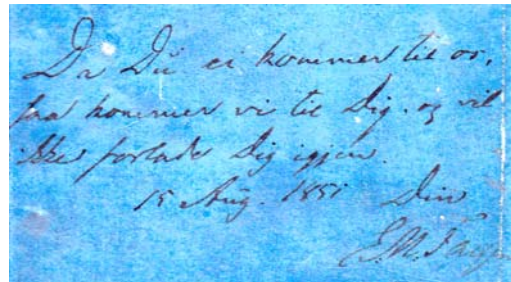 Da Du ei kommer til os,
saa kommer vi til Dig. og vil
ikke forlade Dig igjen.
15 Aug. 1851 Din
E. M.